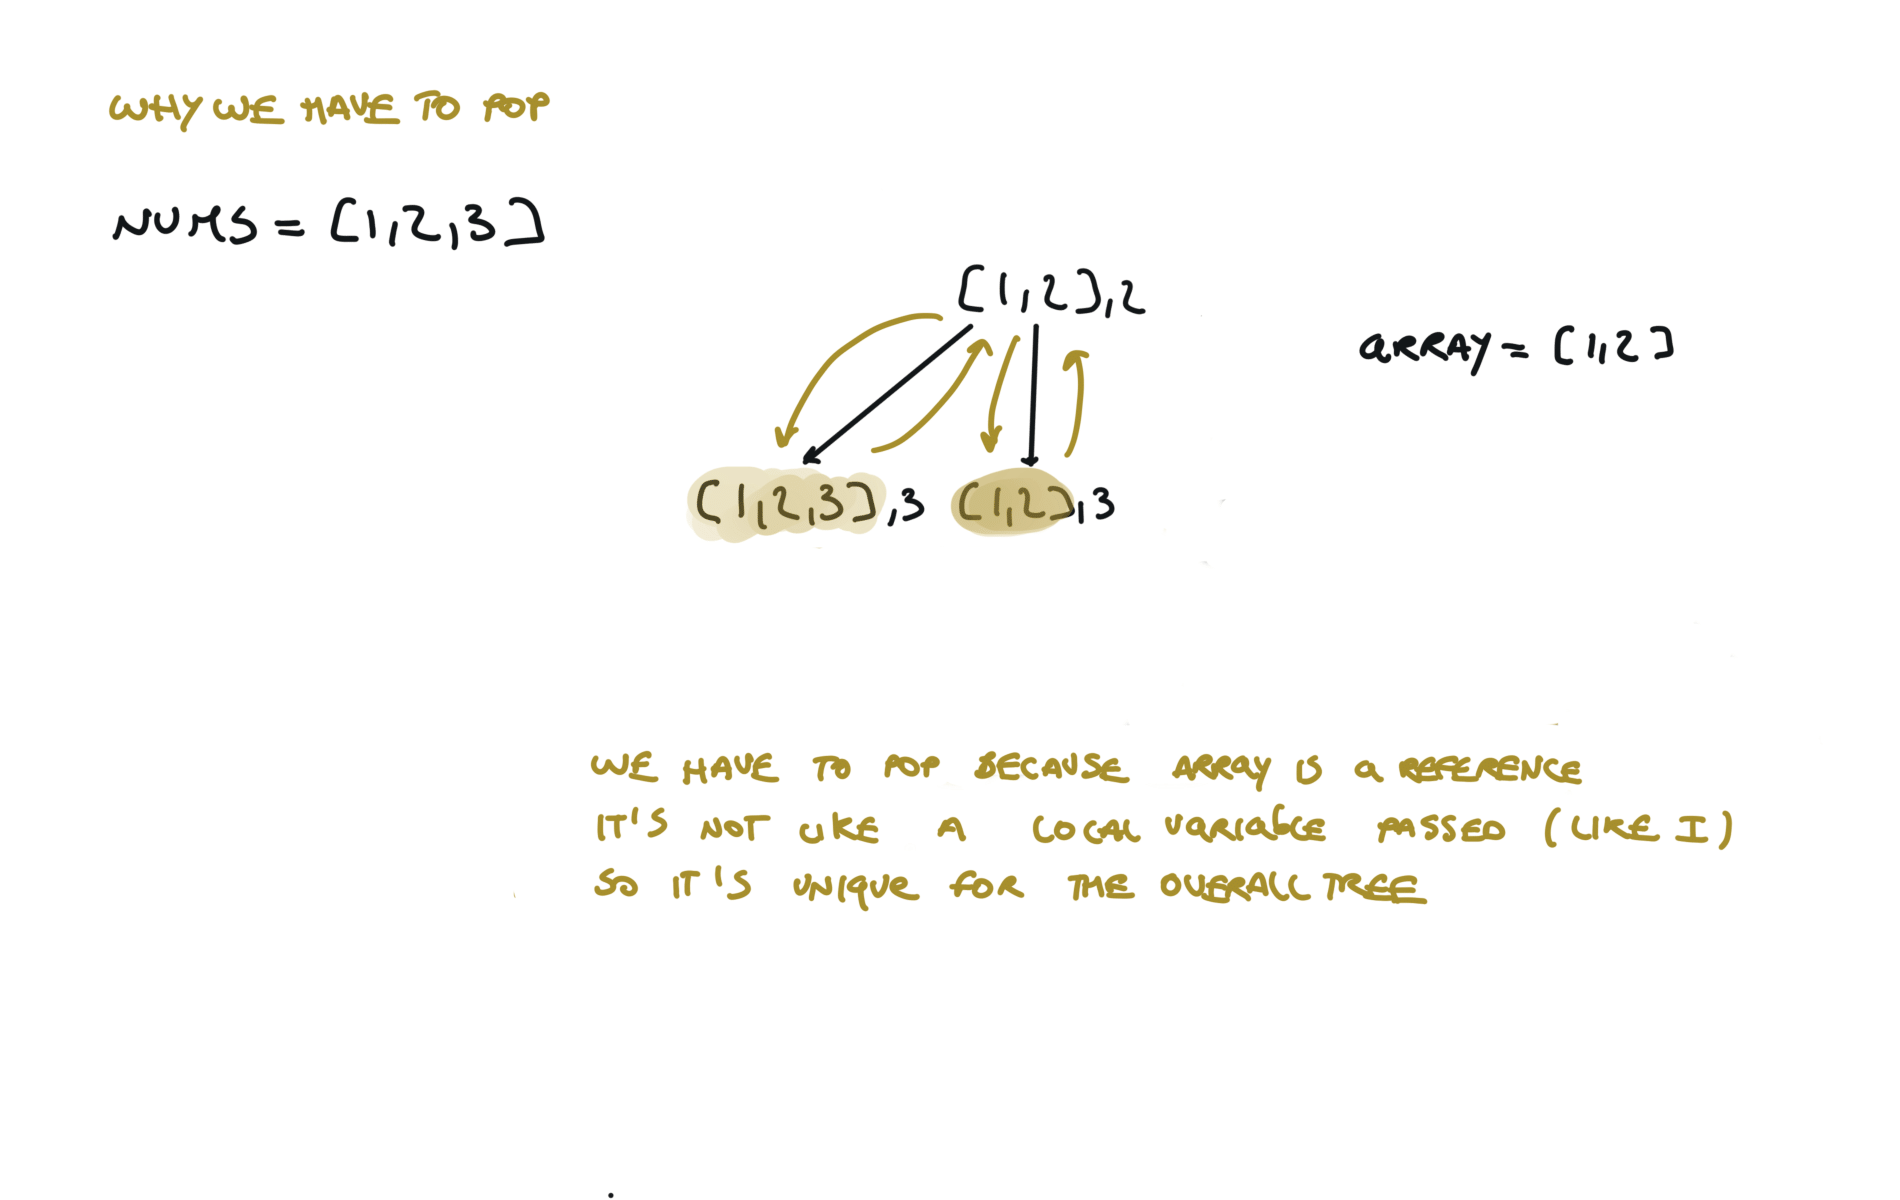 WHY WE HAVE TO POP
NUMS = [1,2,3]
[1,2],2
ARRAY = [1,2]
[1,2,3],3 [1,2],3
WE HAVE TO POP BECAUSE ARRAY IS A REFERENCE
IT'S NOT LIKE A LOCAL VARIABLE PASSED (LIKE I)
SO IT'S UNIQUE FOR THE OVERALL TREE